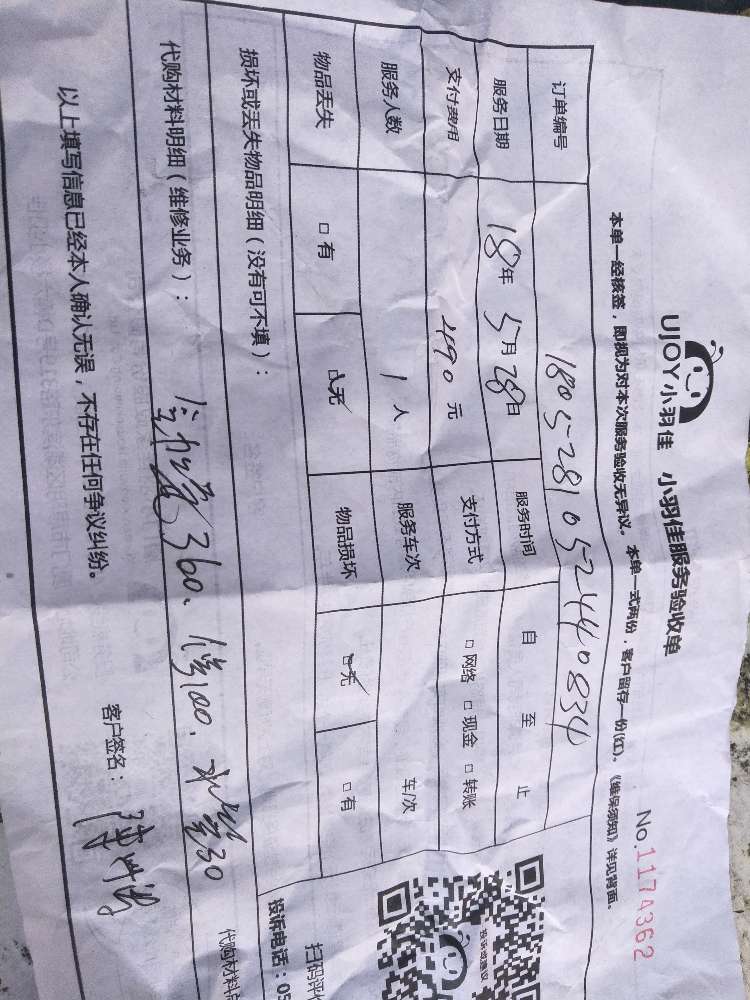 UJOY小羽佳 小羽佳服务验收单
No.1174362
本单一经核签，即视为对本次服务验收无异议。 本单一式两份，客户留存一份(红)。《维保须知》详见背面。
订单编号 180528105244 40834
服务日期 18年 5月 28日 服务时间 自 至 止
支付费用 490 元 支付方式 □ 网络 □ 现金 □ 转账
服务人数 1 人 服务车次 车/次
物品丢失 □ 有 □ 无 物品损坏 □ 无 □ 有
损坏或丢失物品明细（没有可不填）：
代购材料明细（维修业务）： 360、 100、 30
以上填写信息已经本人确认无误，不存在任何争议纠纷。
客户签名：
投诉或建议
扫码评
投诉电话：05
代购材料